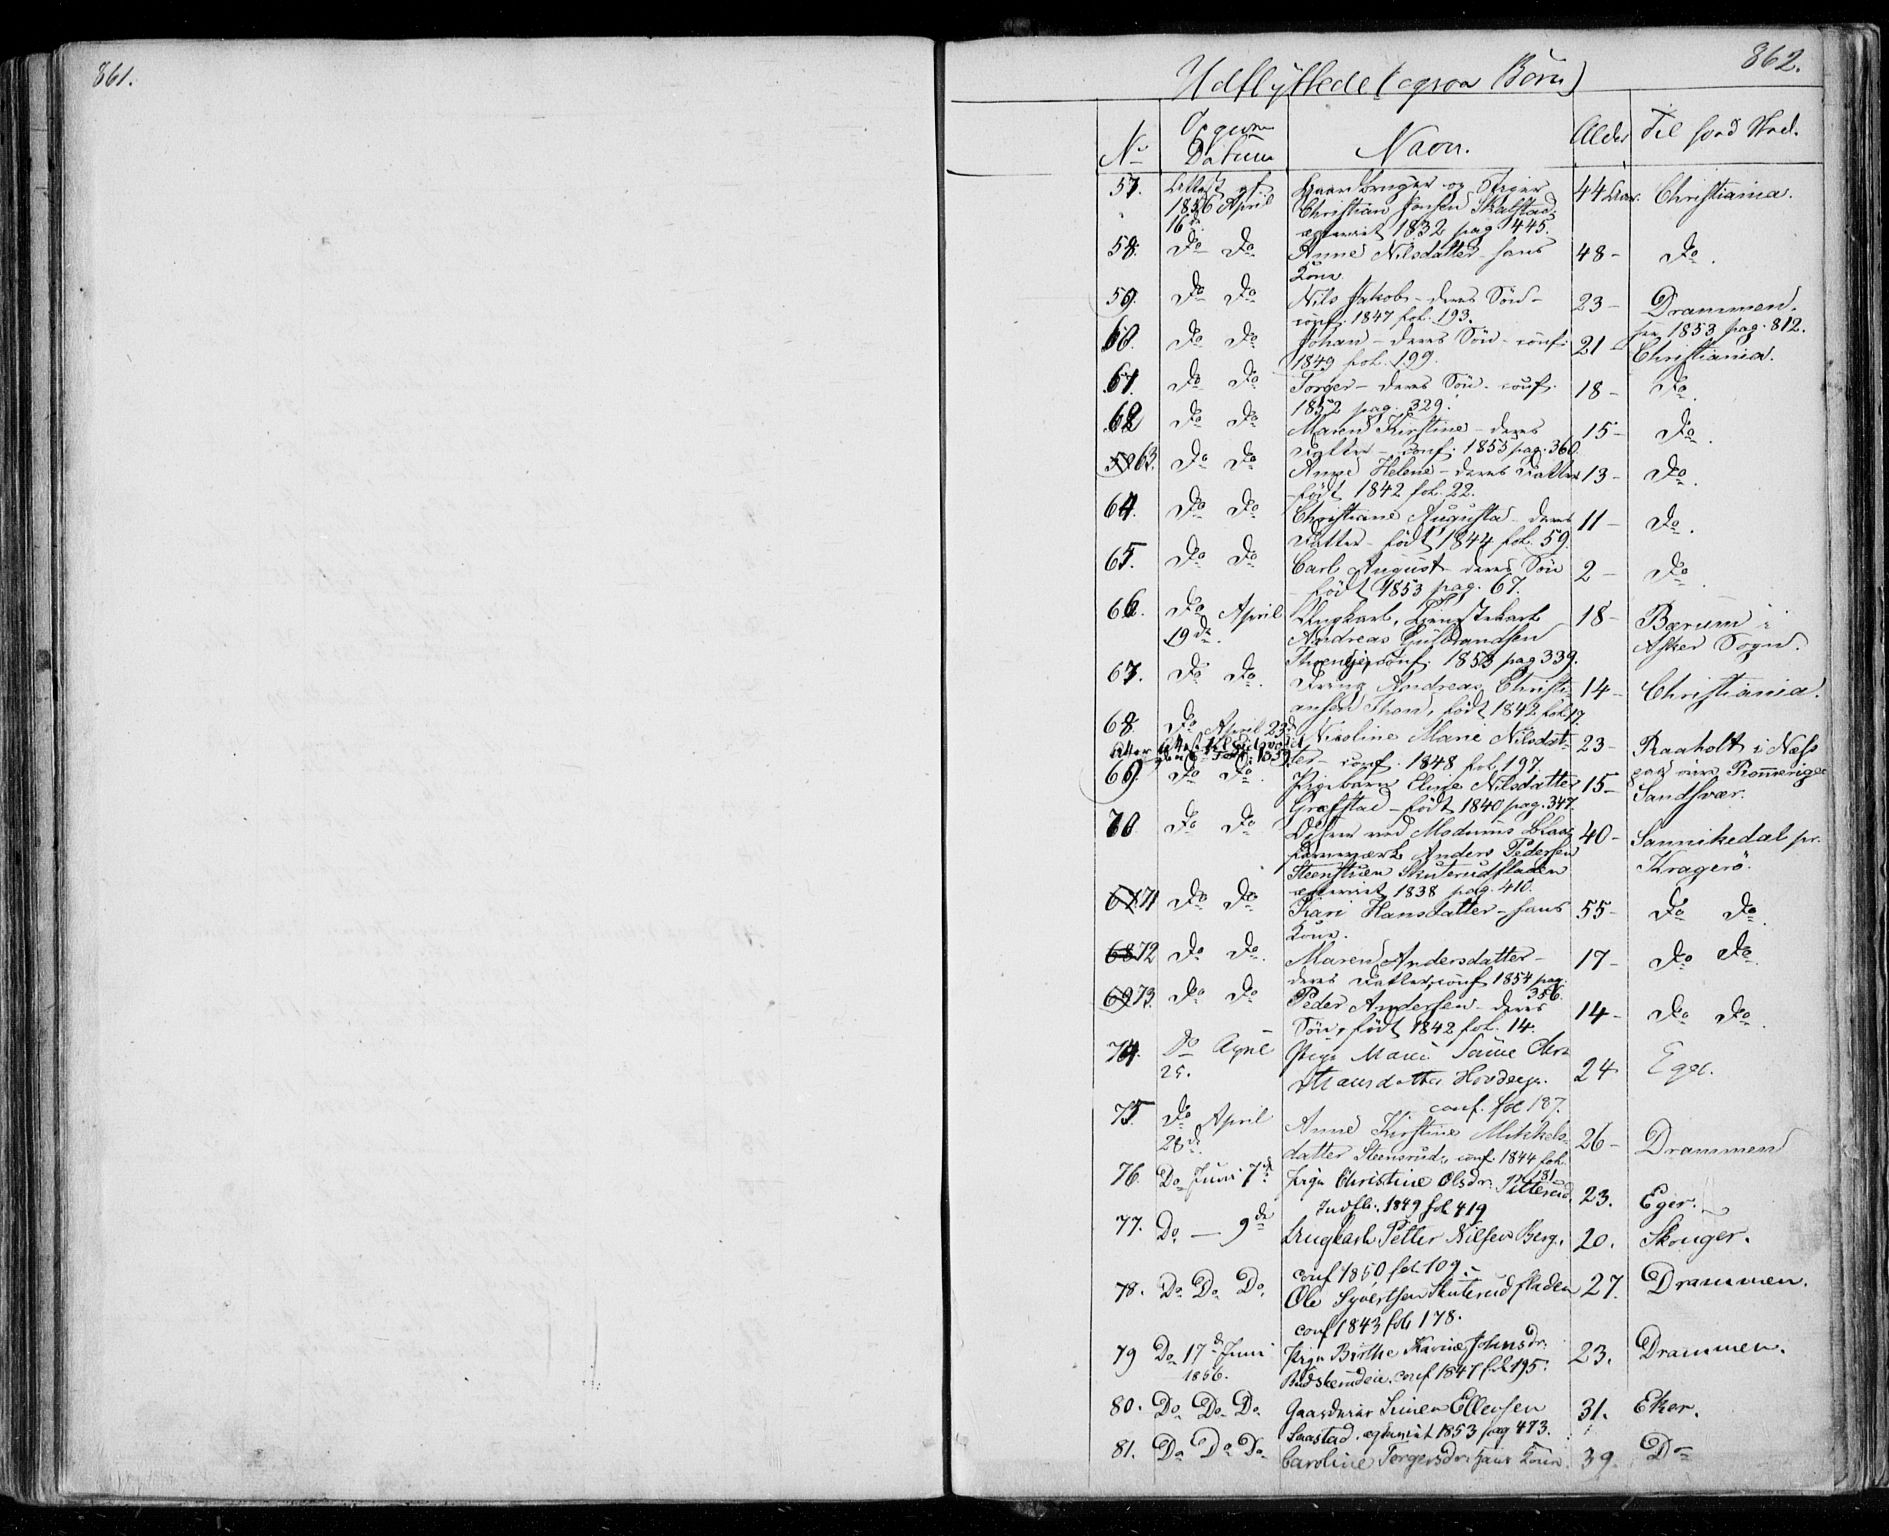 861.
862.
Udflyttede (ogsaa Børn)
No
Datum
Navn.
Alder
Til hvad Sted.
57. Attest af 1856 April 16de
Gaardbruger og
Christian Jonsen Skalstad
egteviet 1832 pag 445.
44 Aar. Christiania.
58. Do Do Anne Nilsdatter - hans
Kone.
48 - Do.
59. Do Do Nils Jakob - deres Søn -
conf. 1847 fol. 193.
23 - Drammen.
1853 pag. 812.
60. Do Do Johan - deres Søn - conf:
1849 fol. 199.
21 - Christiania.
61. Do Do Torger - deres Søn - conf.
1852 pag. 329.
18 - Do.
62 Do Do Maren Kirstine - deres
Datter - conf. 1855 pag. 360.
15 - Do.
63. Do Do Anne Helene - deres Datter
- født 1842 fol. 22.
13 - Do.
64. Do Do Christiane Augusta - deres
Datter - født 1844 fol. 59.
11 - Do.
65. Do Do Carl August - deres Søn
- født 1853 pag. 67.
2 - Do.
66. Do April 19de
Ungkarl, Tjenestekarl
Andreas Gulbrandsen
conf. 1853 pag 339.
18 - Bærum i
Asker Sogn.
67. Do Do. Dreng Andreas Christi-
ansen født 1842 fol. 17.
14 - Christiania.
68. Do April 23de
Nicoline Marie Nilsdat-
ter - conf. 1848 fol. 197.
23 - Raaholt i Næs
Romerige
69. Do Do. Pigebarn Eline Nilsdatter
Græfstad - født 1840 pag. 347.
15 - Sandsvær.
70. Do Do. ved Modums Blaa-
farveværk Anders Pedersen
Steenstuen Skuterudfladen
egteviet 1838 pag. 410.
40 - Sannikedal pr.
Kragerø.
71 Do Do. Kari Hansdatter - hans
Kone.
55 - Do Do.
72 Do Do. Maren Andersdatter -
deres Datter, conf 1854 pag.
356.
17 - Do Do.
73. Do Do Peder Andersen - deres
Søn, født 1842 fol. 14.
14 - Do Do.
74. Do April
25.
Pige Maren
conf. fol 187.
24 Eger.
75. Do April
28de
Anne Kirstine Mikkels-
datter Steensrud, conf. 1844 fol.
181
26 - Drammen
76. Do Juni 7de
Pige Christine Olsdr.
Indfl. 1849 fol 419
23. Eger.
77. Do — 9de Ungkarl Petter Nilsen Berg.
conf 1850 fol. 109.
20. Skouger.
78. Do Do Do. Ole Syvertsen Skuterudfladen
conf 1843 fol 178.
27. Drammen.
79 Do 17de Juni
1856.
Pige Birthe Karine Johnsdr.
Buskerudeie. conf 1847 fol 195.
23. Drammen.
80. Do Do Do Gaardmand Simen Ellensen
Saastad. egteviet 1853 pag 473.
31. Eker.
81. Do Do Do. Caroline Torgersdr. hans Kone.
39. Do